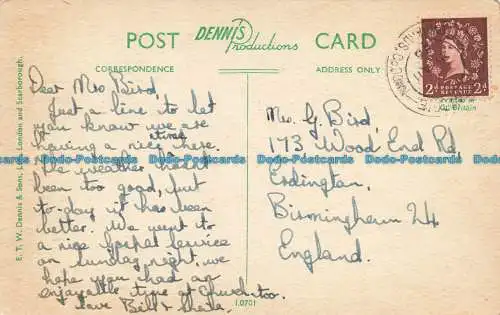 POST DENNIS Productions CARD
CORRESPONDENCE
ADDRESS ONLY
Dear Mrs Bird,
Just a line to let
you know we are
having a nice time here.
The weather hasn't
been too good, but
to-day it has been
better. We went to
a nice gospel service
on Sunday night, we
hope you had an
enjoyable time at Church too.
love Bill & Sheila.
Mrs. G. Bird,
173 Wood End Rd,
Erdington,
Birmingham 24
England.
2d POSTAGE REVENUE 2d
E. T. W. Dennis & Sons, Ltd., London and Scarborough.
Postcards Dodo-Postcards Dodo-Postcards Dodo-Postcards
L0701